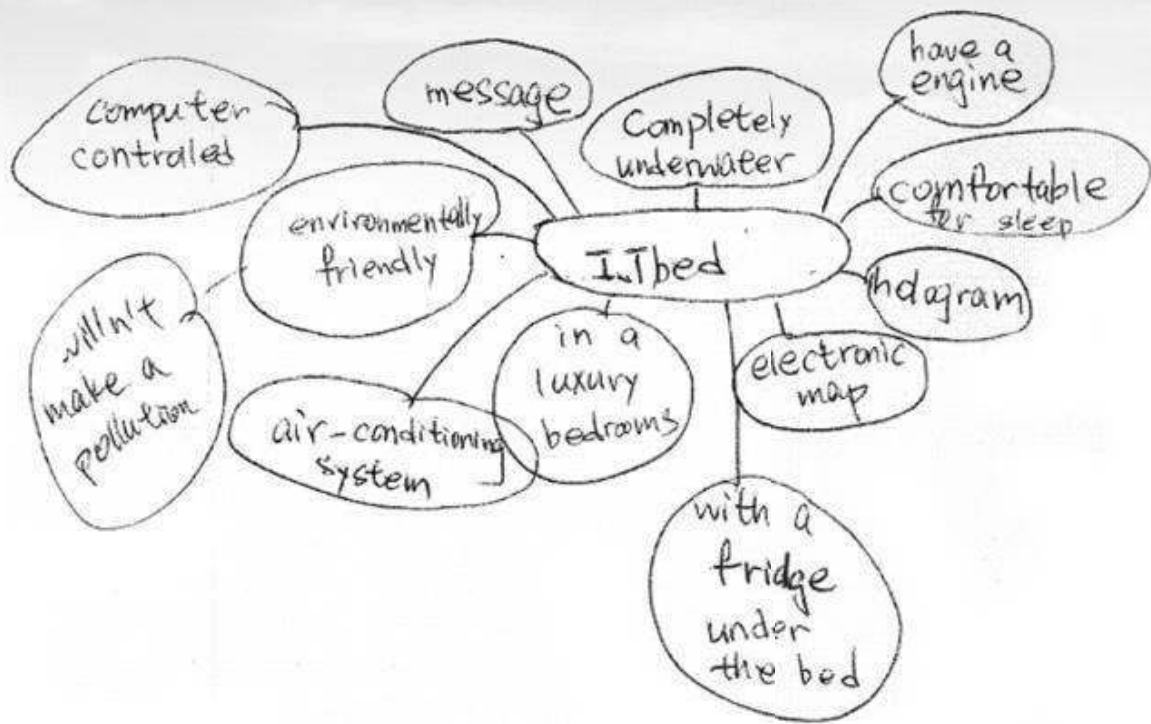 computer
controled
message
Completely
underwater
have a
engine
comfortable
for sleep
environmentally
friendly
I.T bed
hologram
willn't
make a
pollution
air-conditioning
system
in a
luxury
bedrooms
electronic
map
with a
fridge
under
the bed